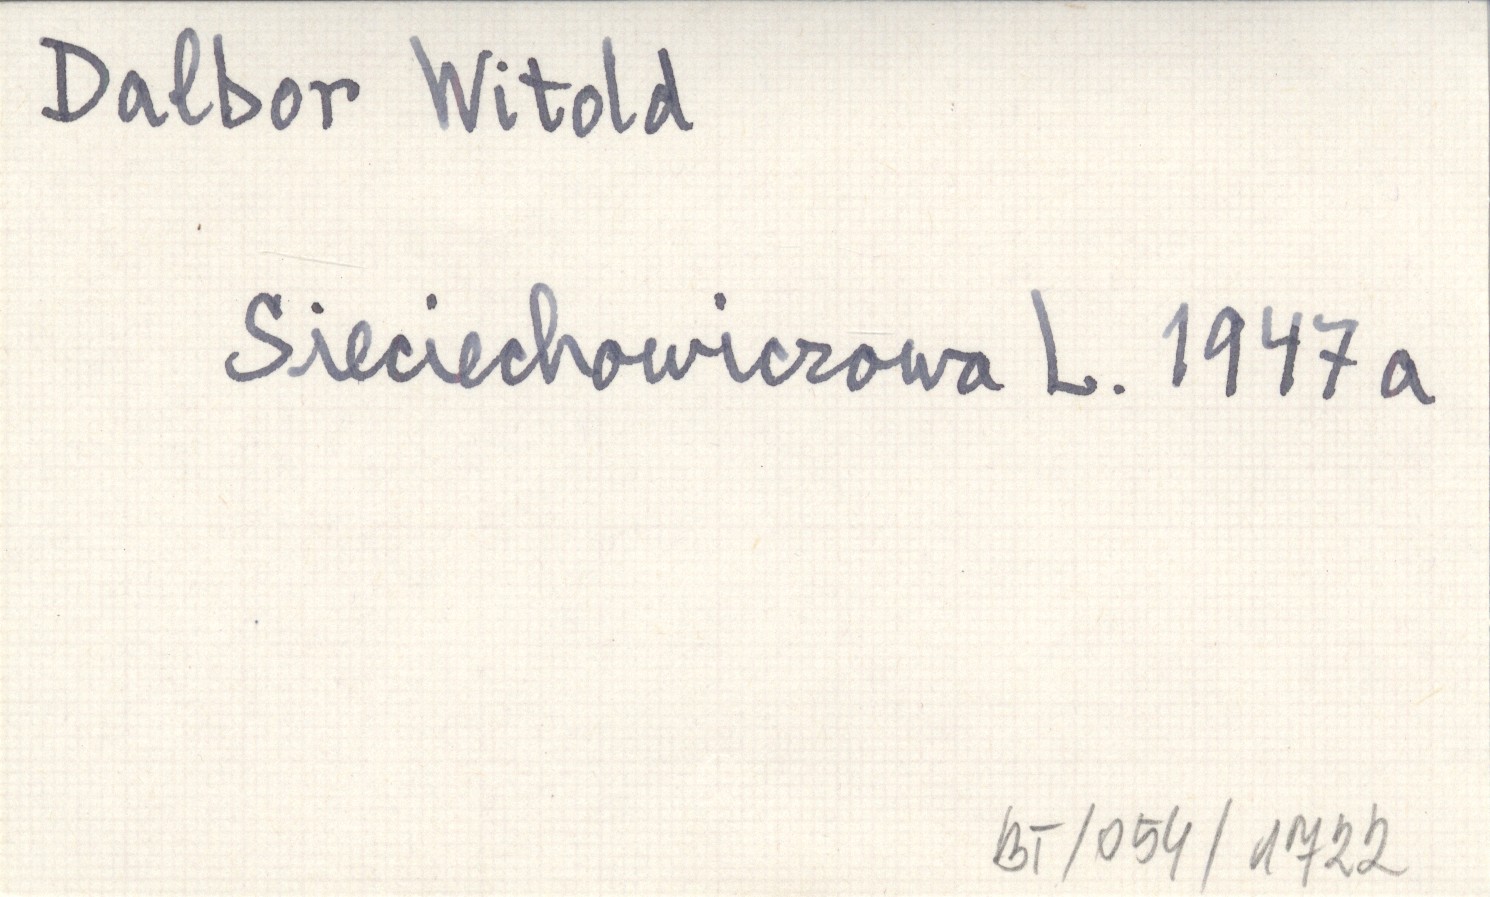 Dalbor Witold
Sieciechowiczowa L. 1947a
BT/054/1722